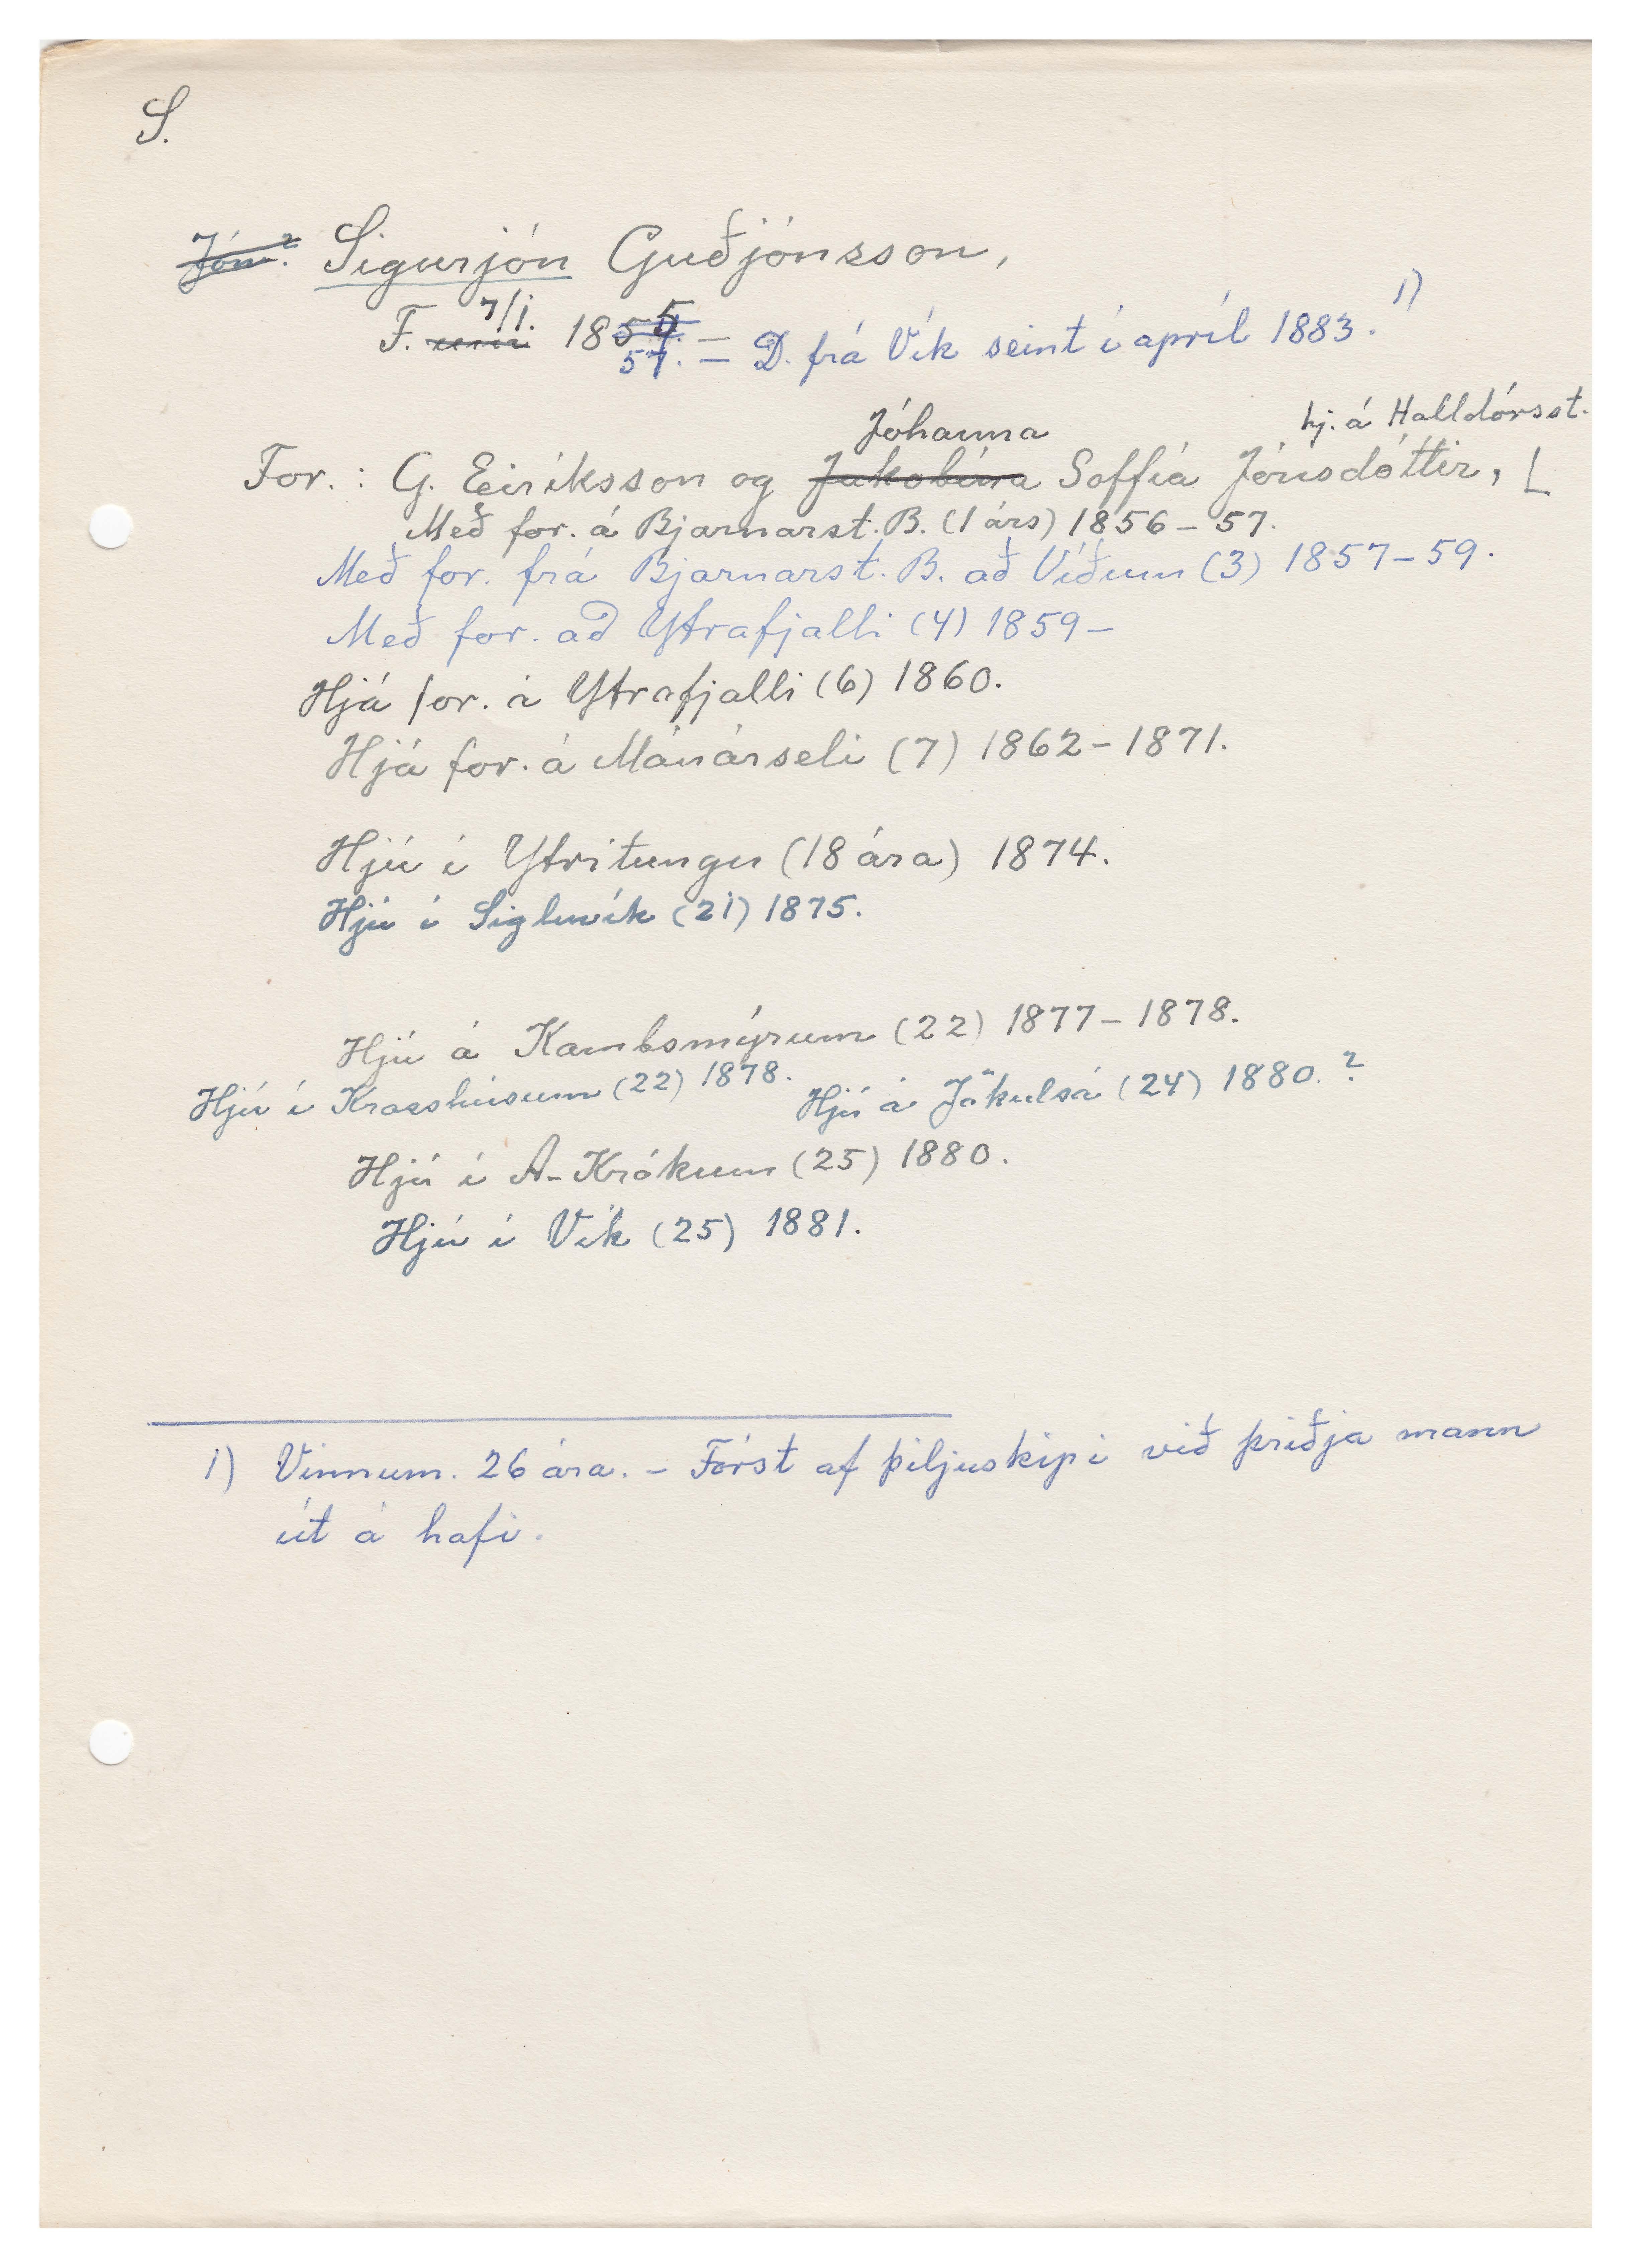 S.
Jón? Sigurjón Guðjónsson,
F. 7/1. 1855. 57. – D. frá Vík seint í apríl 1883. 1)
Jóhanna hj. á Halldórsst.
For.: G. Eiríksson og Jakobína Soffía Jónsdóttir, L
Með for. á Bjarnarst. B. (1 árs) 1856 – 57.
Með for. frá Bjarnarst. B. að Víðum (3) 1857 – 59.
Með for. að Ytrafjalli (4) 1859 –
Hjá for. á Ytrafjalli (6) 1860.
Hjá for. á Mánárseli (7) 1862 – 1871.
Hjú í Ytritungu (18 ára) 1874.
Hjú í Sigluvík (21) 1875.
Hjú á Kambsmýrum (22) 1877 – 1878.
Hjú í Krosshúsum (22) 1878. Hjú á Jökulsá (24) 1880.?
Hjú í A-Krókum (25) 1880.
Hjú í Vík (25) 1881.
1) Vinnum. 26 ára. – Fórst af þiljuskipi við þriðja mann
út á hafi.